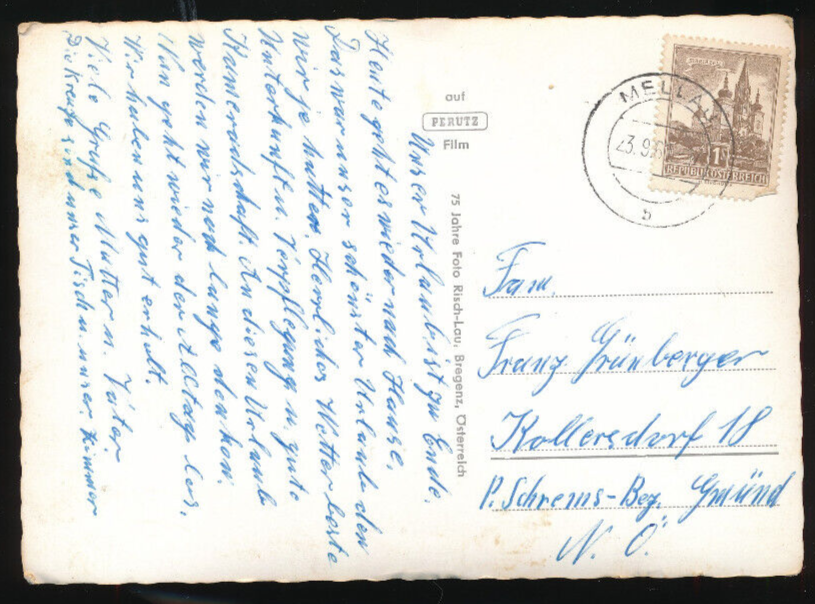 Unser Urlaub ist zu Ende,
Heute geht es wieder nach Hause,
Das war unser schönster Urlaub den
wir je hatten, Herrliches Wetter beste
Unterkunft u. Verpflegung u. gute
Kameradschaft. An diesen Urlaub
werden wir noch lange denken.
Nun geht wieder der Alltag los,
Wir haben uns gut erholt.
Viele Grüße Mutter u. Vater
Die Kreuze sind unser Tisch u. unser Zimmer
auf
PERUTZ
Film
75 Jahre Foto Risch-Lau, Bregenz, Österreich
MELLAU
23.9.
b
MARIAZELL
1S
REPUBLIK ÖSTERREICH
Fam.
Franz Grünberger
Kollersdorf 18
P. Schrems-Bez. Gmünd
N. Ö.